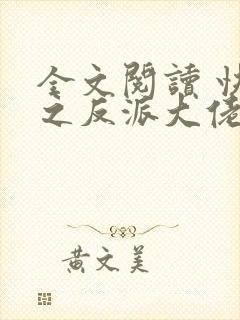 全文閱讀 快
之反派大佬
黃文美